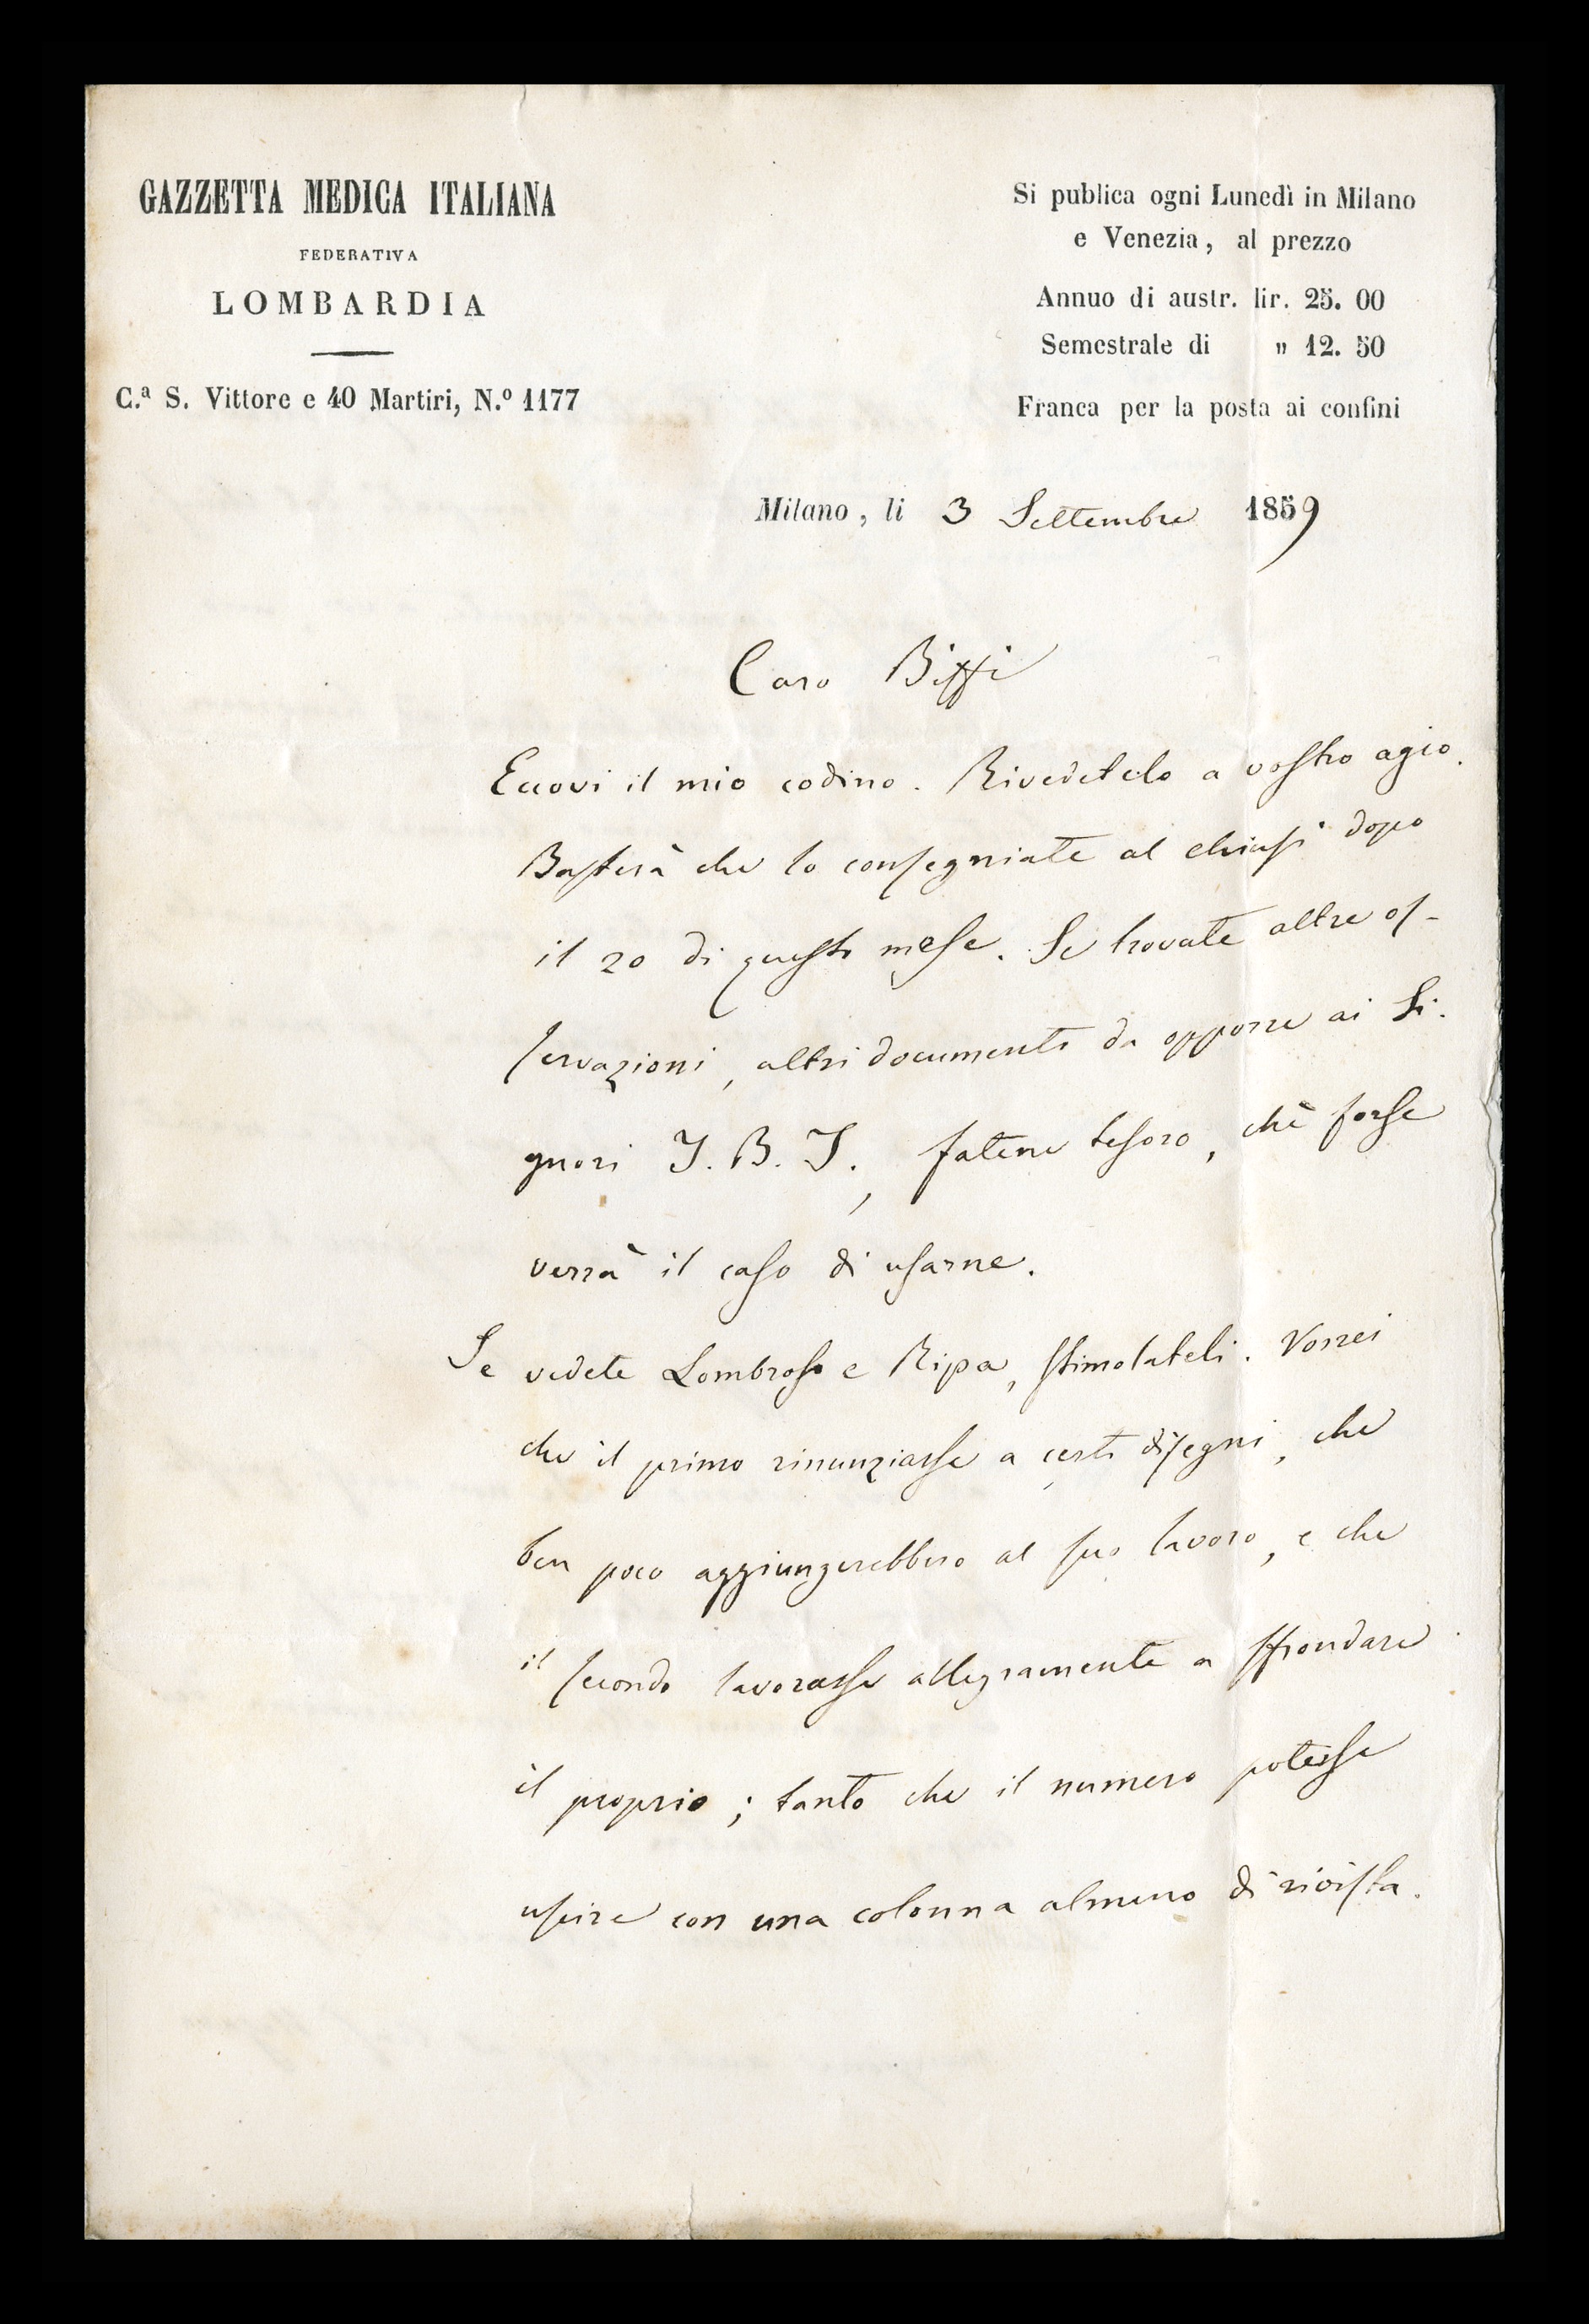 GAZZETTA MEDICA ITALIANA
FEDERATIVA
LOMBARDIA
C.ª S. Vittore e 40 Martiri, N.º 1177
Si publica ogni Lunedì in Milano
e Venezia, al prezzo
Annuo di austr. lir. 25. 00
Semestrale di " 12. 50
Franca per la posta ai confini
Milano, li 3 Settembre 1859
Caro Biffi
Eccovi il mio codino. Rivedetelo a vostro agio.
Basterà che lo consegniate al Chiusi dopo
il 20 di questo mese. Se trovate altre os-
servazioni, altri documenti da opporre ai Si.
gnori J. B. J., fatene tesoro, chè forse
verrà il caso di usarne.
Se vedete Lombroso e Ripa, stimolateli. Vorrei
che il primo rinunziasse a certi disegni, che
ben poco aggiungerebbero al suo lavoro, e che
il secondo lavorasse allegramente a sfrondare
il proprio; tanto che il numero potesse
uscire con una colonna almeno di rivista.